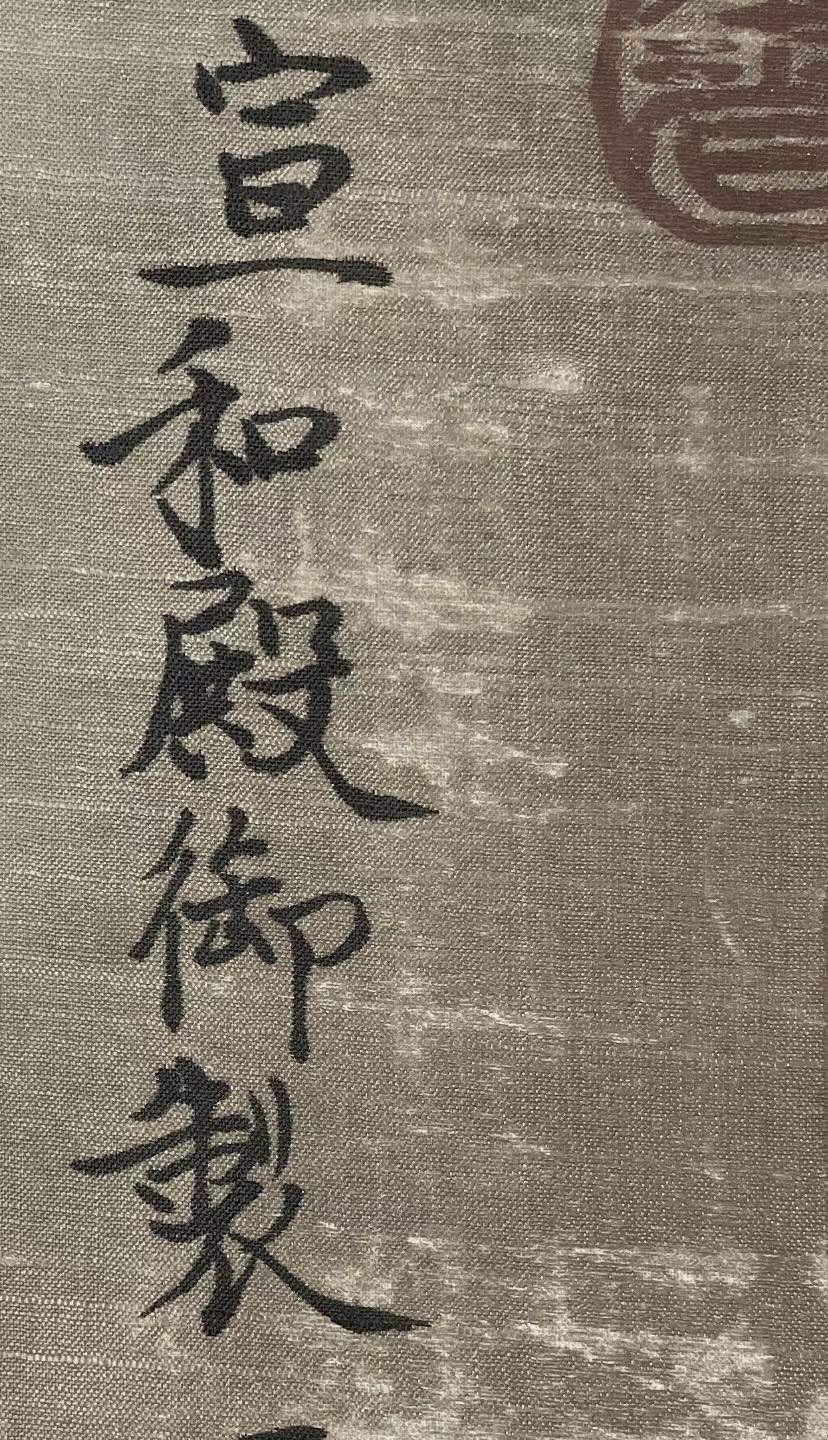 宣和殿御製